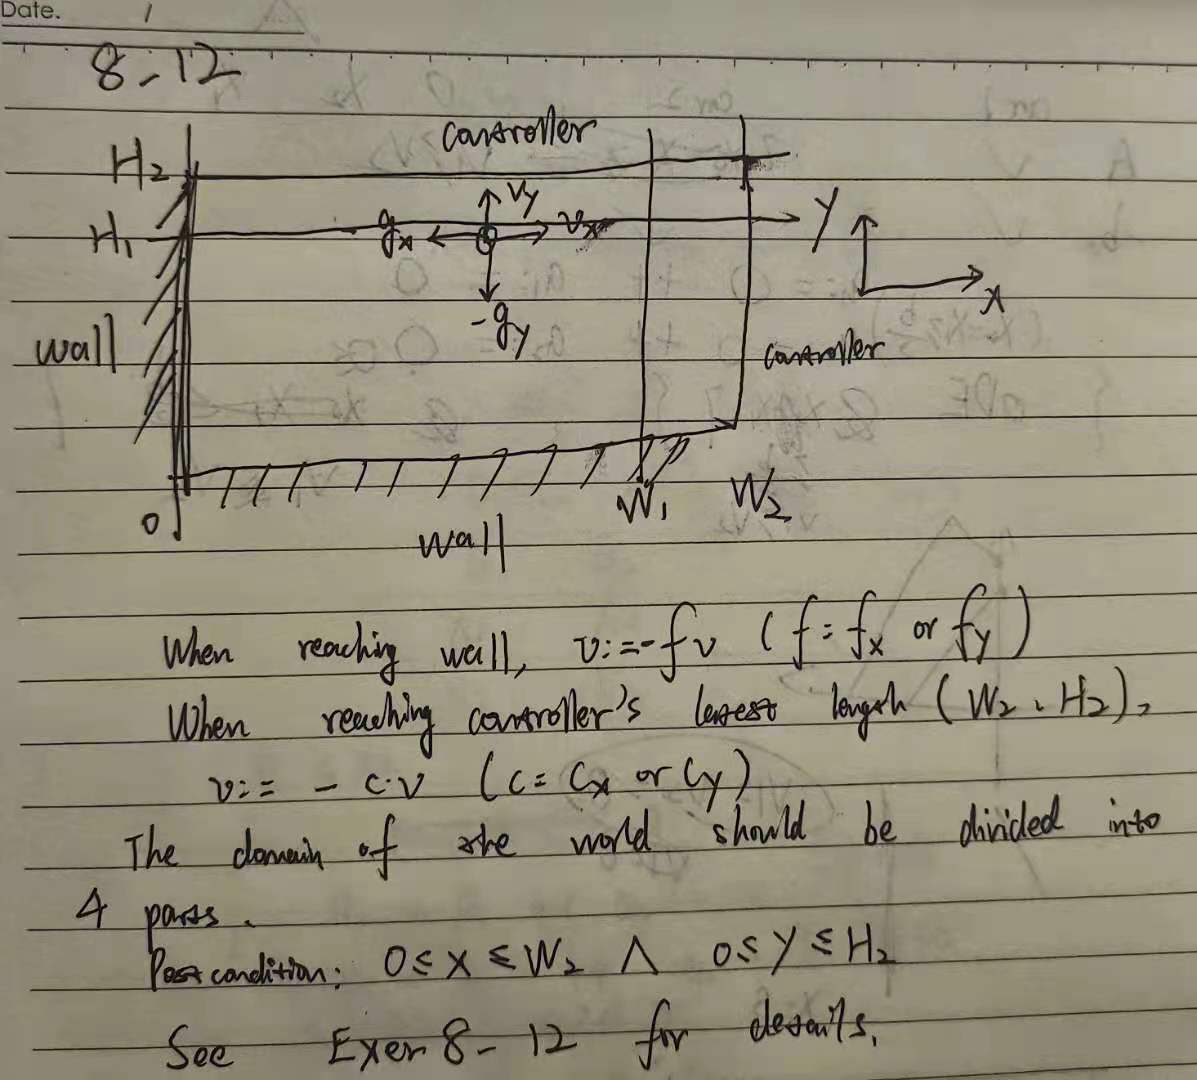 Date.
8-12
controller
H2
Vy
gx
Vx
H1
Y
X
-gy
wall
controller
0
W1
W2
wall
When reaching wall, v:=-fv (f=fx or fy)
When reaching controller's largest length (W2、H2),
v:= -c·v (c=Cx or Cy)
The domain of the world should be divided into
4 parts.
Postcondition: 0≤X≤W2 ∧ 0≤Y≤H2
See Exer 8-12 for details.